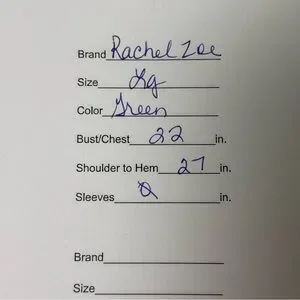 Brand Rachel Zoe
Size Lg
Color Green
Bust/Chest 22 in.
Shoulder to Hem 27 in.
Sleeves 0 in.
Brand
Size